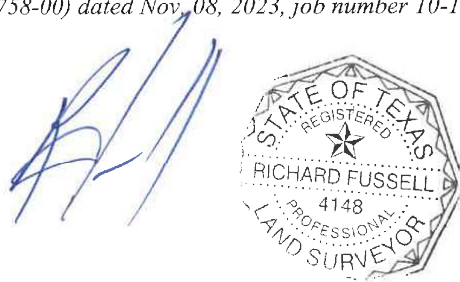 758-00) dated Nov. 08, 2023, job number 10-1
STATE OF TEXAS
REGISTERED
RICHARD FUSSELL
4148
PROFESSIONAL
LAND SURVEYOR